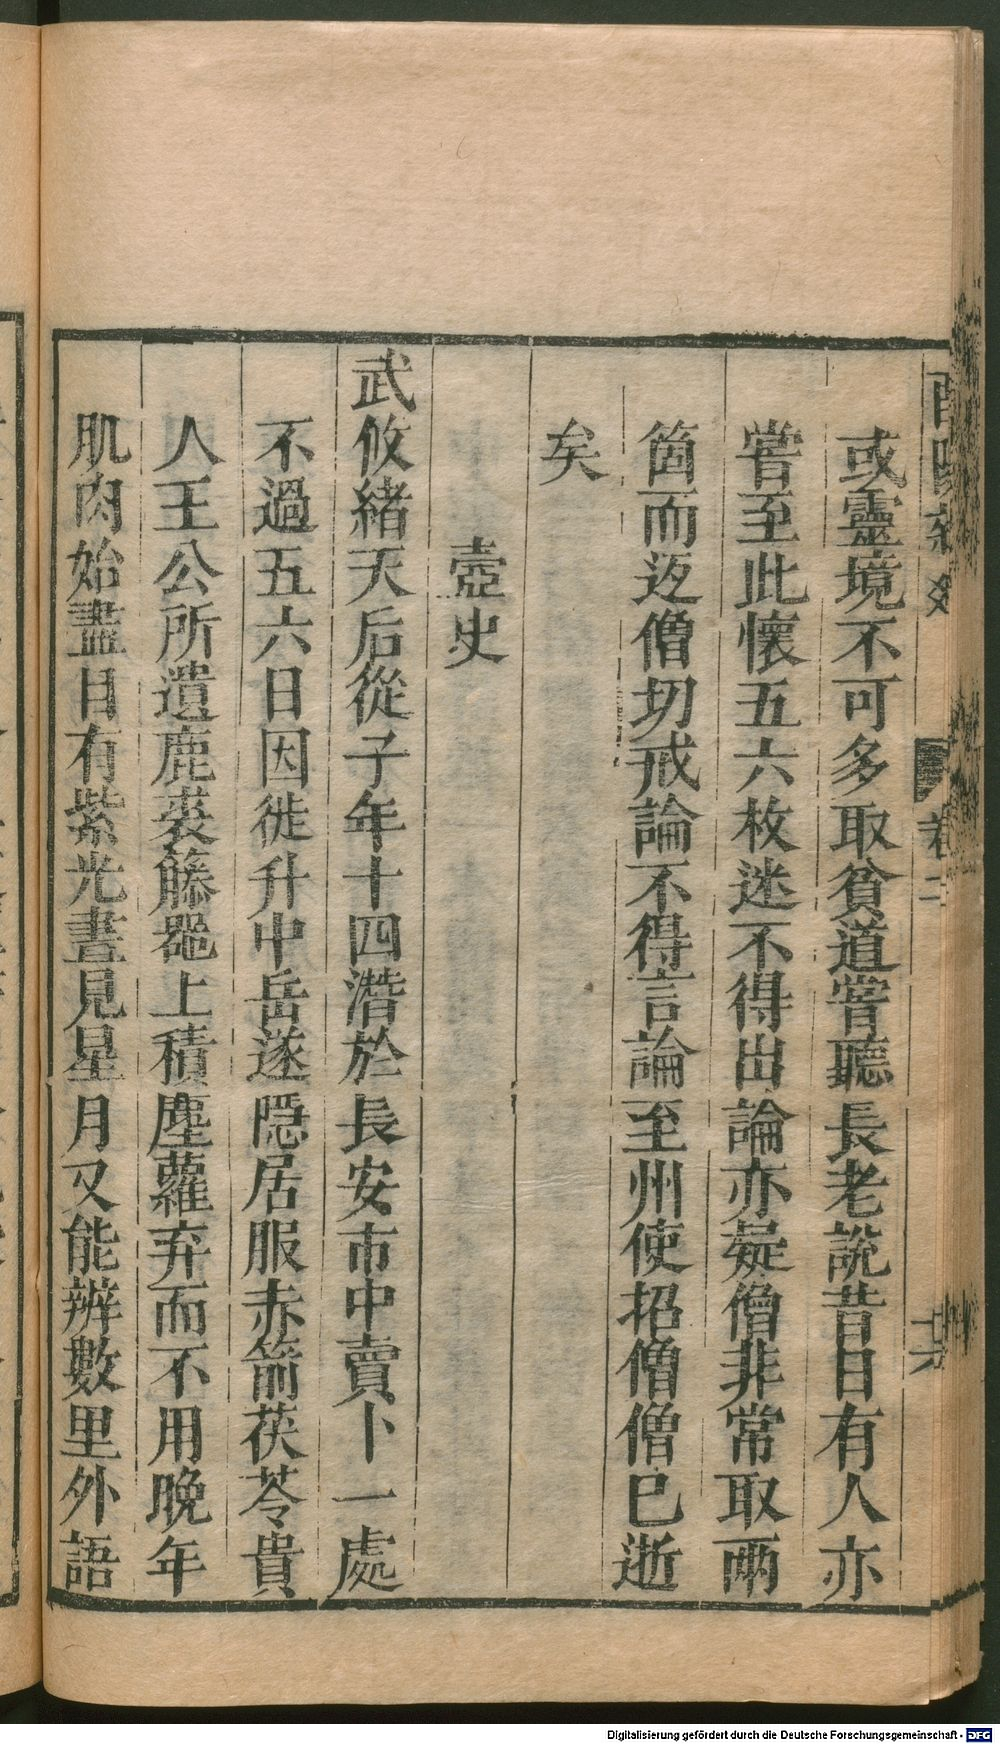 酉陽雜俎 卷二 二六
或靈境不可多取貧道嘗聽長老說昔日有人亦
嘗至此懷五六枚迷不得出論亦疑僧非常取兩
箇而返僧切戒論不得言論至州使招僧僧已逝
矣
壺史
武攸緒天后從子年十四潛於長安市中賣卜一處
不過五六日因徙升中岳遂隱居服赤箭茯苓貴
人王公所遺鹿裘籐器上積塵蘿弃而不用晚年
肌肉始盡目有紫光晝見星月又能辨數里外語
Digitalisierung gefördert durch die Deutsche Forschungsgemeinschaft - DFG